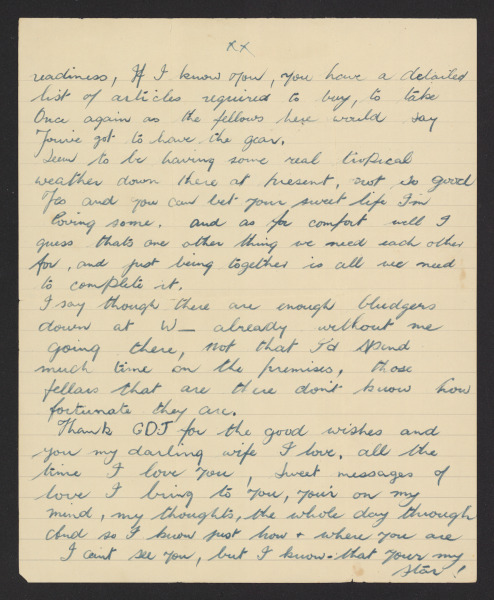 xx
readiness, If I know you, you have a detailed
list of articles required to buy, to take
Once again as the fellows here would say
You've got to have the gear.
Seem to be having some real tropical
weather down there at present, not so good
Yes and you can bet your sweet life I'm
loving some. and as for comfort well I
guess thats one other thing we need each other
for, and just being together is all we need
to complete it.
I say though there are enough bludgers
down at W— already without me
going there, not that I'd spend
much time on the premises, those
fellars that are there don't know how
fortunate they are.
Thank GDJ for the good wishes and
you my darling wife I love, all the
time I love you, sweet messages of
love I bring to you, you'r on my
mind, my thoughts, the whole day through
And so I know just how + where you are
I can't see you, but I know that your my
star!